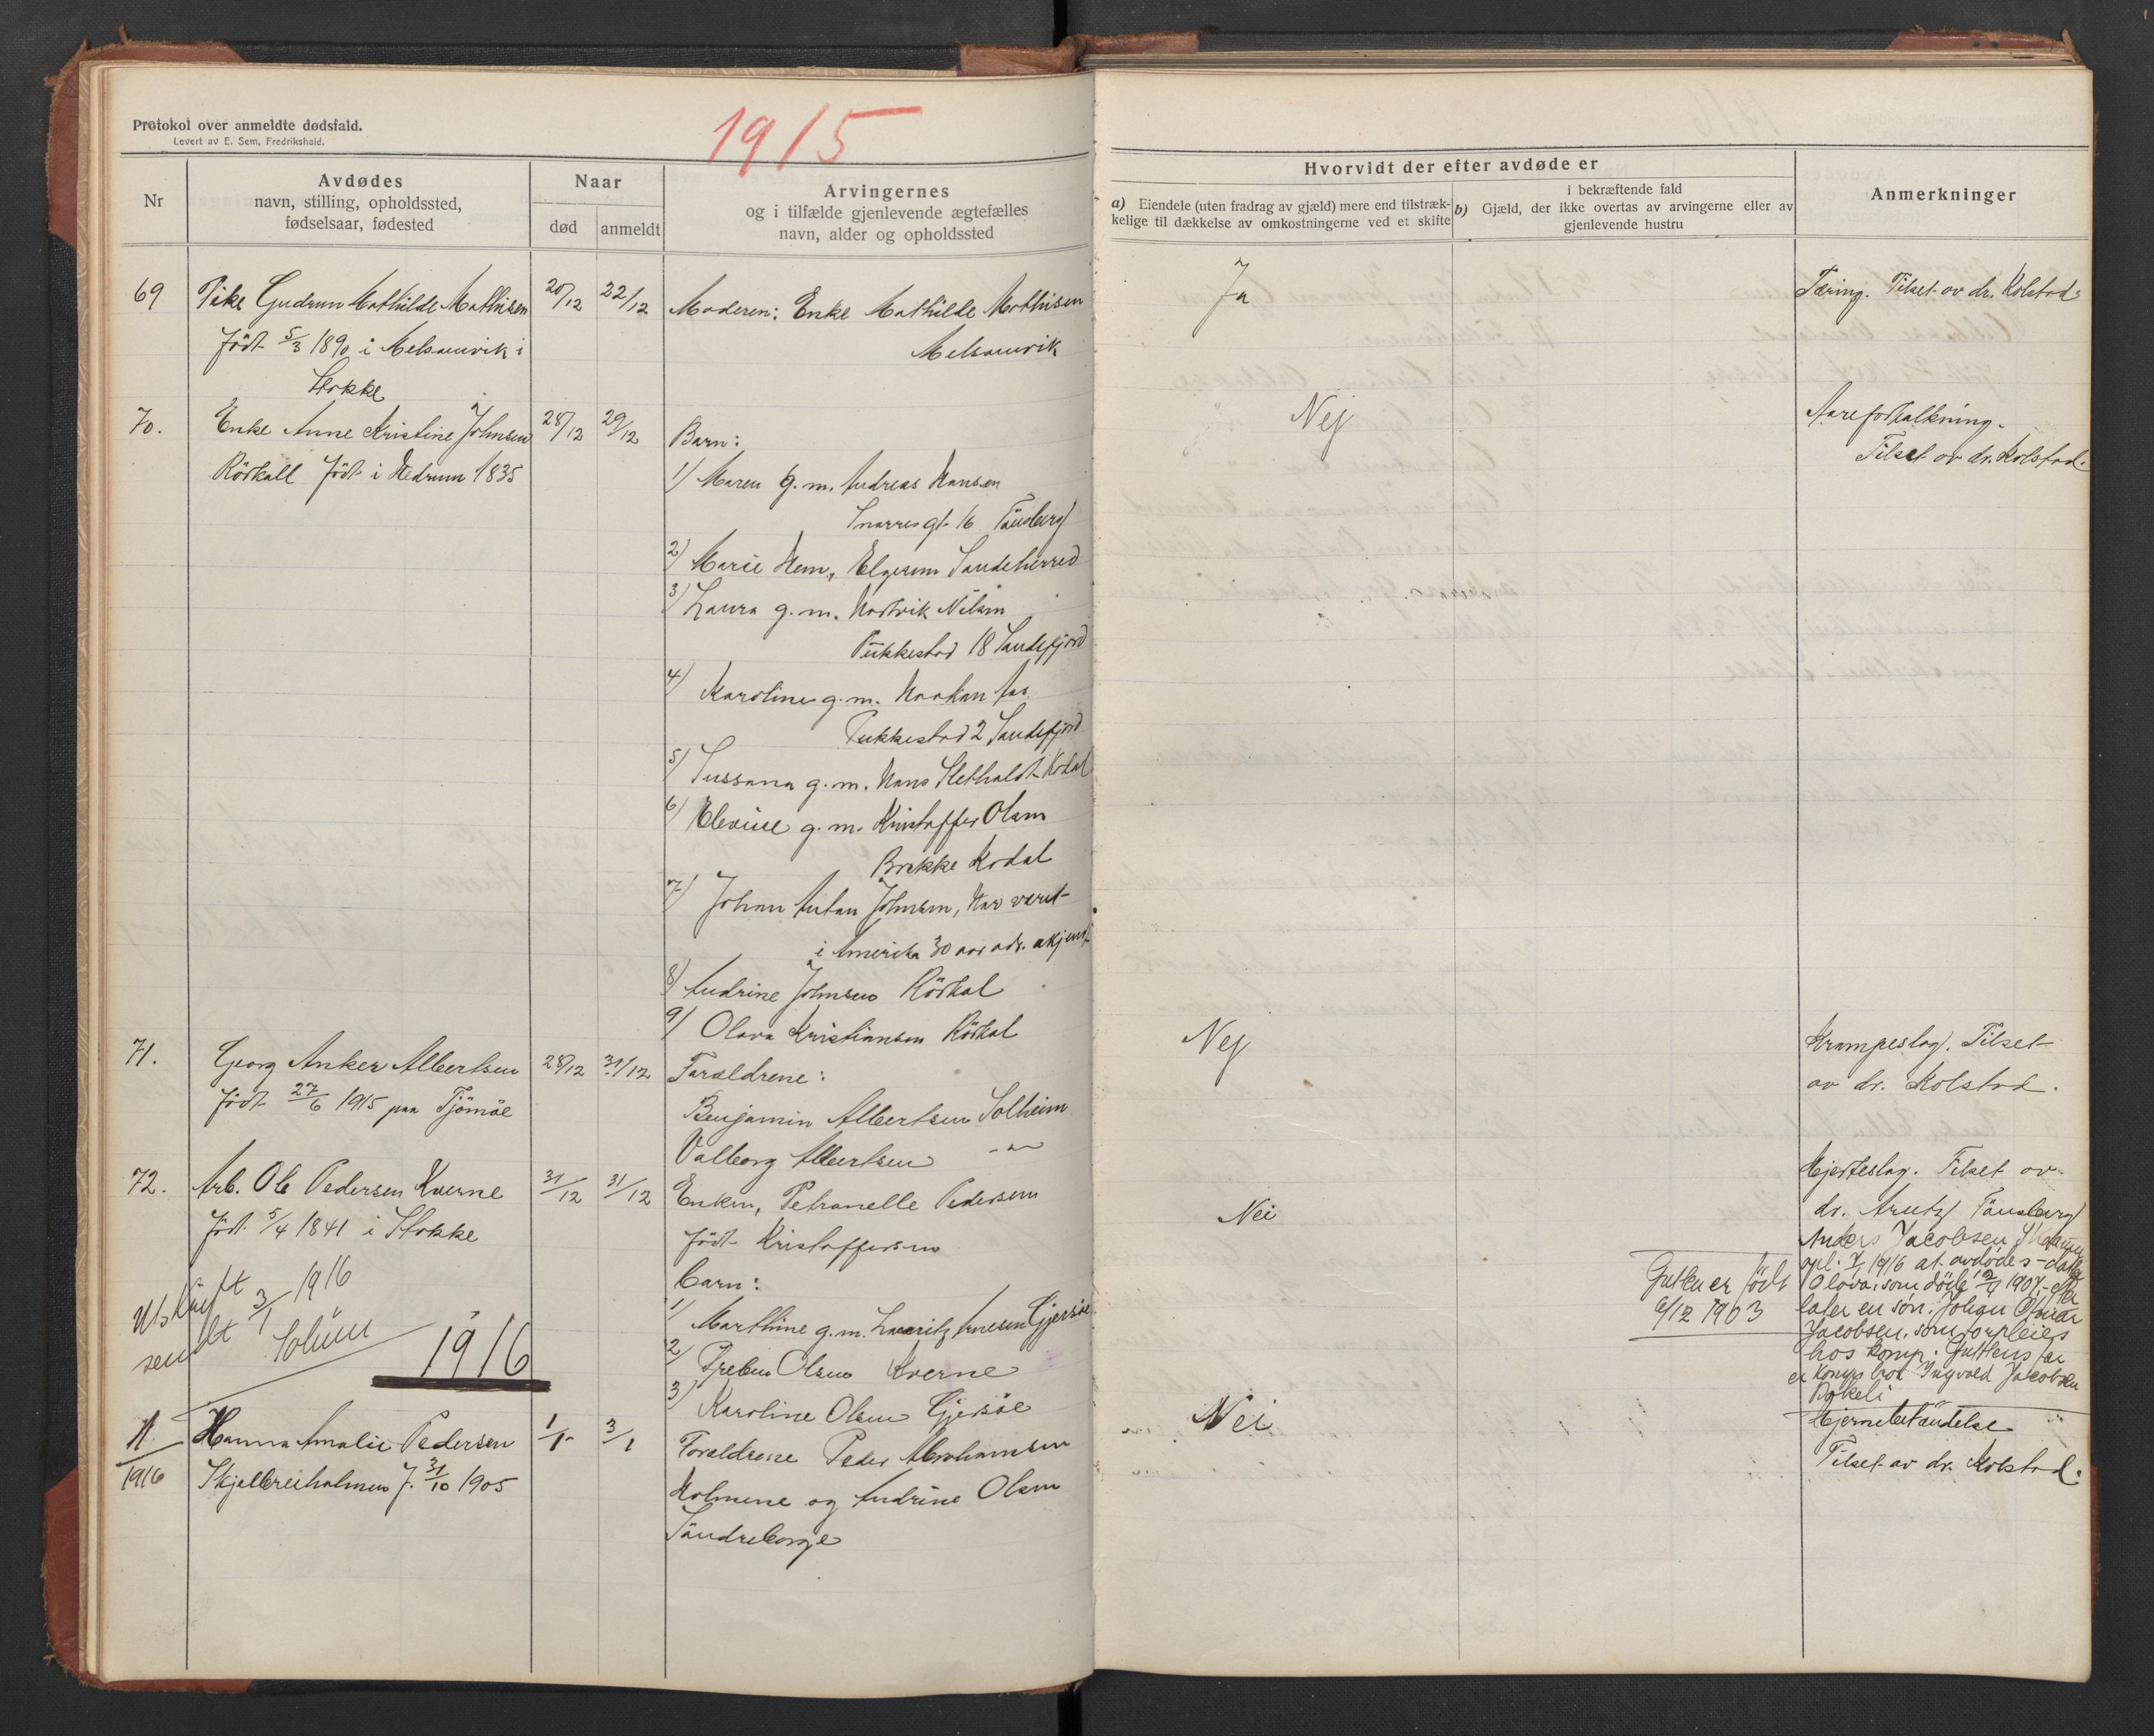 Protokol over anmeldte dødsfald.
Levert av E. Sem, Fredrikshald.
1915
Nr
Avdødes
navn, stilling, opholdssted,
fødselsaar, fødested
Naar
død
anmeldt
Arvingernes
og i tilfælde gjenlevende ægtefælles
navn, alder og opholdssted
Hvorvidt der efter avdøde er
a) Eiendele (uten fradrag av gjæld) mere end tilstræk-
kelige til dækkelse av omkostningerne ved et skifte
i bekræftende fald
b) Gjæld, der ikke overtas av arvingerne eller av
gjenlevende hustru
Anmerkninger
69
Pike Gudrun Mathilde Mathisen
Født 5/3 1890 i Melsomvik i
Stokke
20/12
22/12
Moderen: Enke Mathilde Mathisen
Melsomvik
Ja
Tæring. Tilset av dr. Kolstad.
70.
Enke Anne Kristine Johnsen
Röskall Født i Hedrum 1835
28/12
29/12
Barn:
1) Maren g. m. Andreas Hansen
Snarresgt. 16 Tønsberg
2) Marie Hem, Elgesem Sandeherred
3) Laura g. m. Nilsen
Pukkestad 18 Sandefjord
4) Karoline g. m. Haakan Aas
Pukkestad 2 Sandefjord
5) Sussana g. m. Hans Slethaldt Kodal
6) g. m. Kristoffer Olsen
Brekke Kodal
7) Johan Anton Johnsen, Har veret
i Amerika 30 aar adr. ukjendt
8) Andrine Johnsen Röskal
9) Olava Kristiansen Röskal
Nej
Aareforkalkning.
Tilset av dr. Kolstad.
71.
Georg Anker Albertsen
Født 27/6 1915 paa Tjömöe
28/12
31/12
Forældrene:
Benjamin Albertsen Solheim
Valborg Albertsen -"-
Nej
Krampeslag. Tilset
av dr. Kolstad.
72.
Arb. Ole Pedersen Kverne
Født 5/4 1841 i Stokke
31/12
31/12
Enken, Petranelle Pedersen
født Kristoffersen
barn:
1) Marthine g. m. Lauritz Arnesen Gjersøe
2) Preben Olsen Kverne
3) Karoline Olsen Gjersøe
Nei
Hjerteslag. Tilset av
dr. Arentz Tønsberg
Anders Jacobsen
opl. 7/1 1916 at avdødes datter
Olava, som døde 1907, efter
later en søn: Johan
Jacobsen, som opfleies
hos komp. Guttens far
er komps bror Ingvald Jacobsen
Bokeli
Gutten er født
6/12 1903
Utskrift
sendt 3/1 1916
Solum
1916
1/1916
Hanna Amalie Pedersen
Skjellereiholmen f. 31/10 1905
1/1
3/1
Forældrene Peder Abrahamsen
Holmene og Andrine Olsen
Søndreborge
Nei
Hjernebetændelse
Tilset av dr. Kolstad.